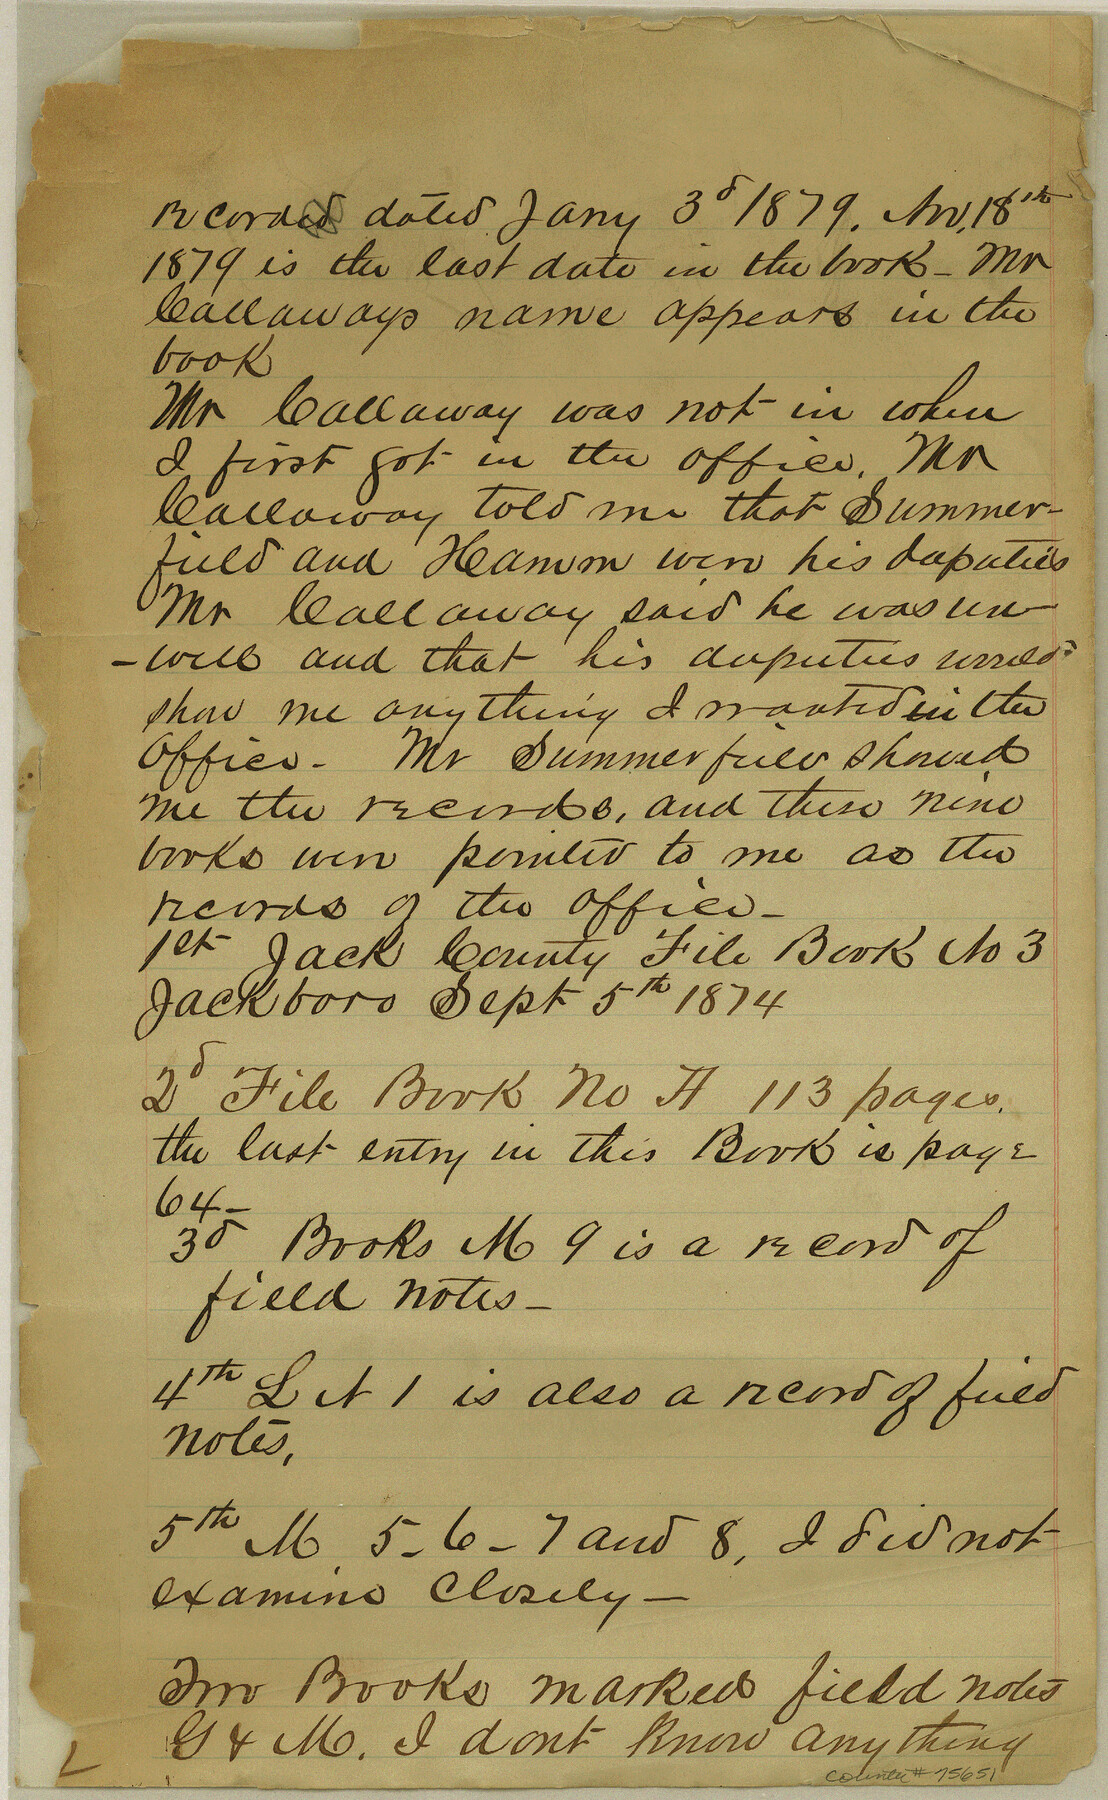 recorded dated Jany 3d 1879. Nov, 18th
1879 is the last date in the book - Mr
Callaways name appears in the
book
Mr Callaway was not in when
I first got in the office. Mr
Callaway told me that Summer-
field and Hamm were his deputies
Mr Callaway said he was un-
-well and that his deputies would
show me anything I wanted in the
Office - Mr Summerfield showed
me the records, and these nine
books were pointed to me as the
records of the office -
1st Jack County File Book No 3
Jackboro Sept 5th 1874
2d File Book No A 113 pages.
the last entry in this Book is page
64 -
3d Books M 9 is a record of
field notes -
4th L N 1 is also a record of field
notes,
5th M 5 - 6 - 7 and 8, I did not
examine closely -
Two Books marked field notes
G & M. I dont know anything
counter # 75651